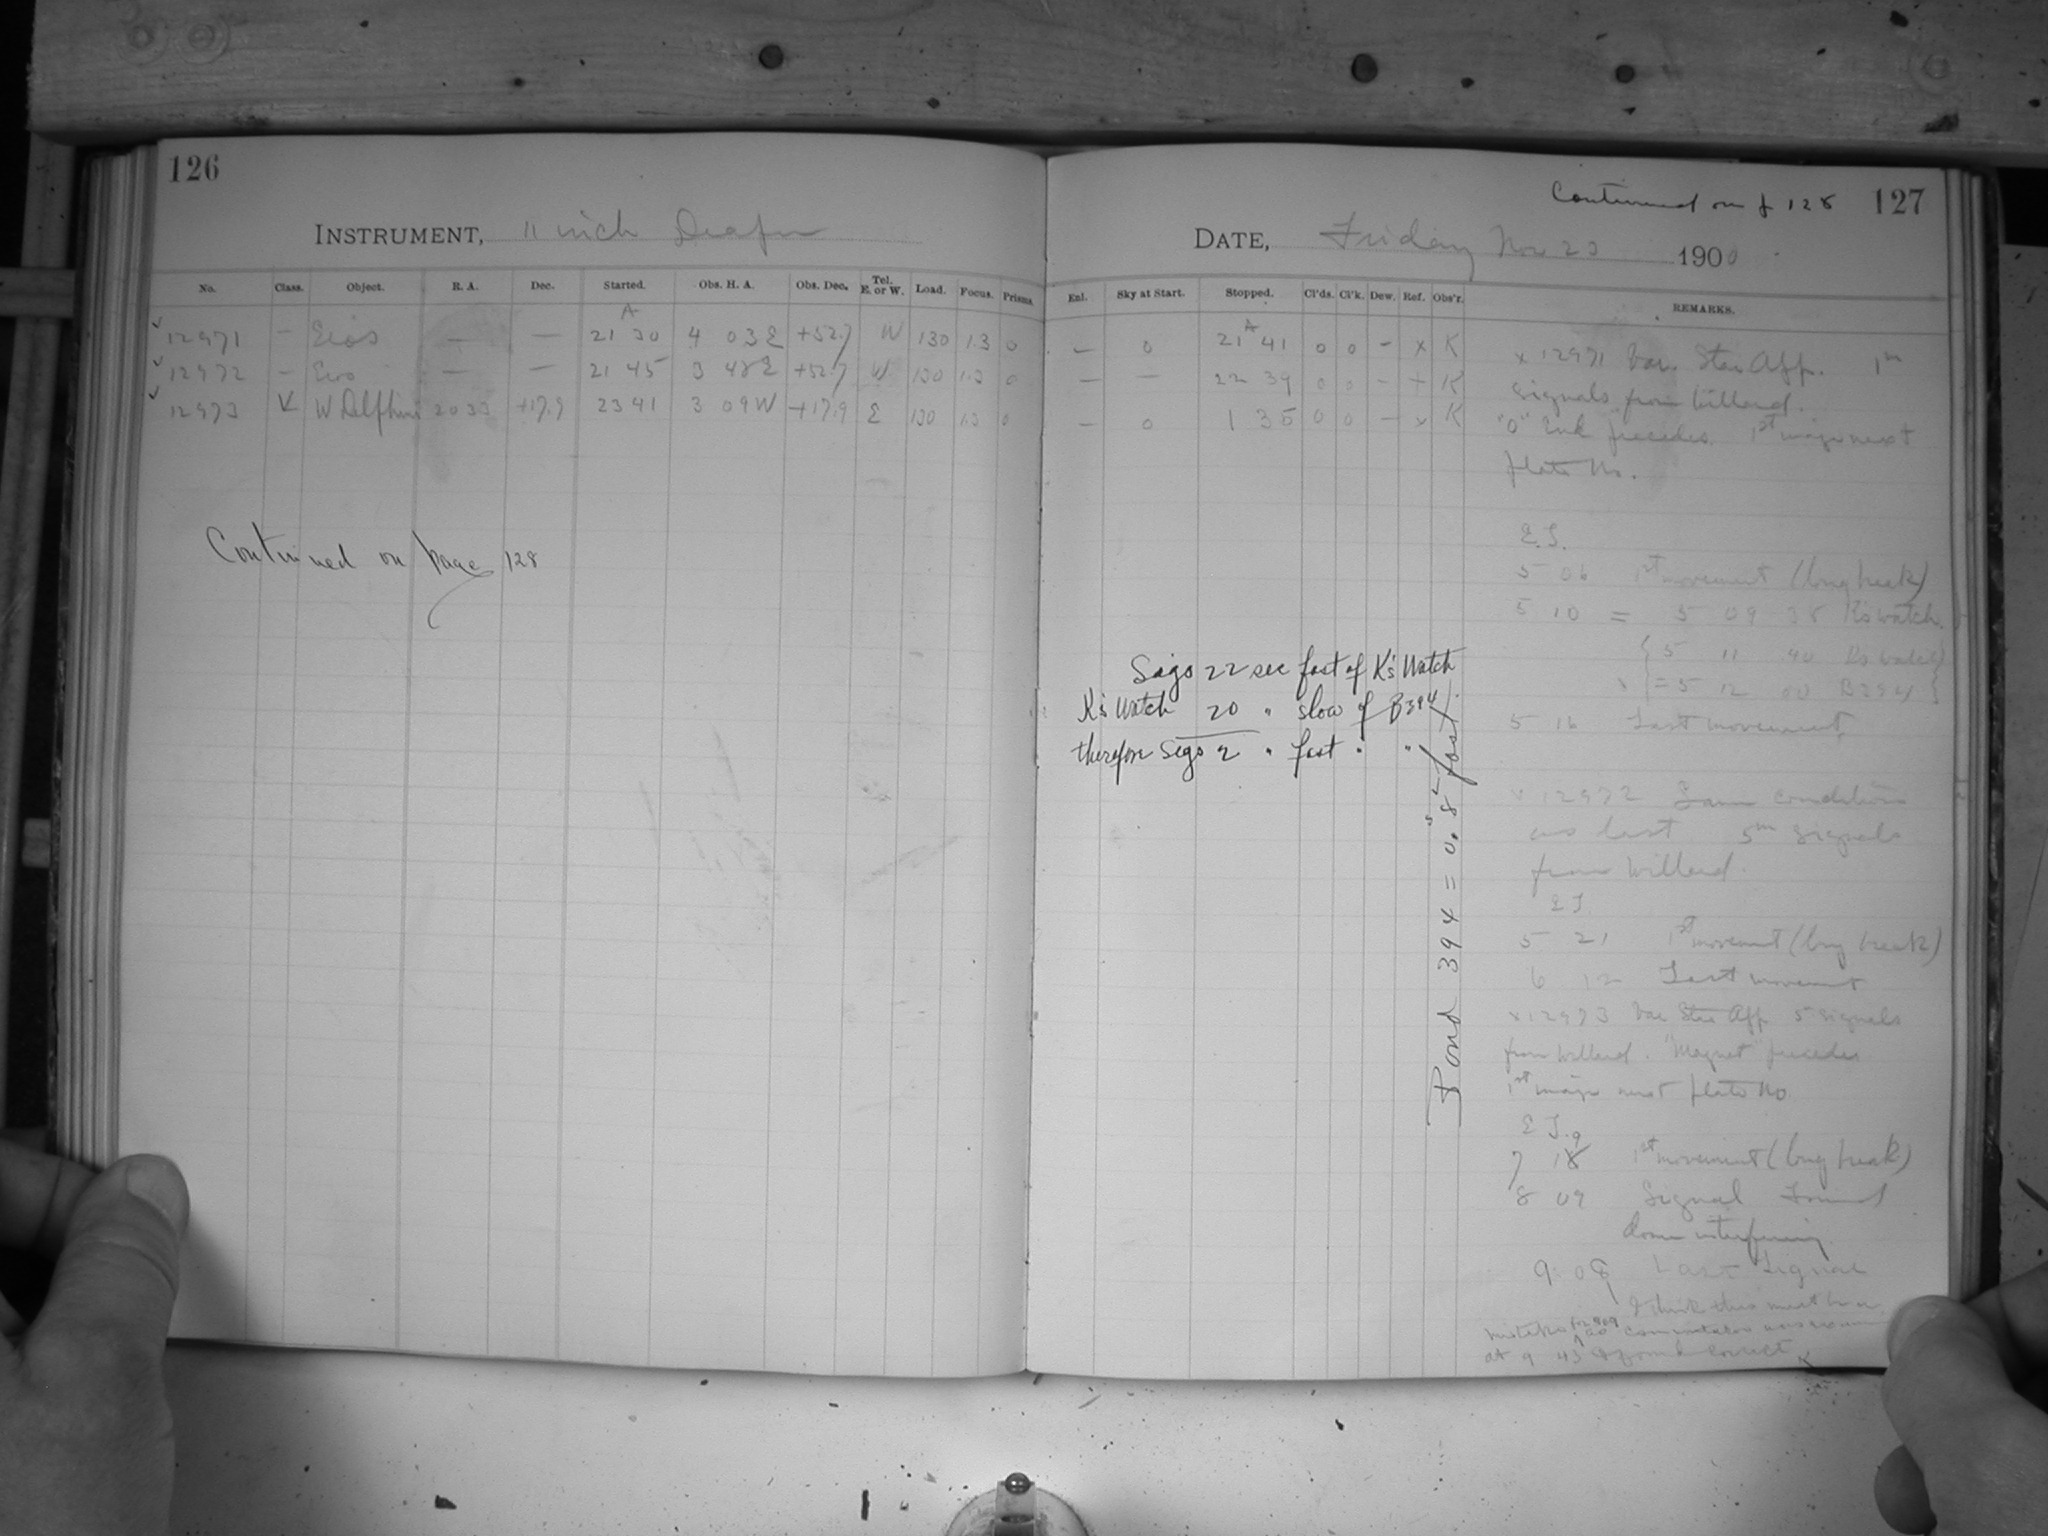 126
INSTRUMENT, 11 inch Draper
No. Class. Object. R. A. Dec. Started. Obs. H. A. Obs. Dec. Tel. E. or W. Load. Focus. Prisms.
A
✓ 12971 — Eros — — 21 30 4 03 E +52.7 W 130 1.3 0
✓ 12972 — Eros — — 21 45 3 48 E +52.7 W 130 1.3 0
✓ 12973 K W Delphini 20 33 +17.9 23 41 3 09 W +17.9 E 130 1.3 0
Continued on page 128
Continued on p 128 127
DATE, Friday Nov 23 1900
Enl. Sky at Start. Stopped. Cl'ds. Cl'k. Dew. Ref. Obs'r. REMARKS.
A
— 0 21 41 0 0 — x K
— — 22 39 0 0 — + K
— 0 1 35 0 0 — x K
x 12971 Var. Star App. 1m
signals from Willard.
"0" End precedes. 1st image next
plate No.
E.T.
5 06 1st movement (long break)
5 10 = 5 09 38 K's watch
{5 11 40 K's watch}
x {= 5 12 00 B394}
5 16 Last movement
Sigs 22 sec fast of K's Watch
K's Watch 20 " slow of B394
therefore Sigs 2 " fast " "
Bond 394 = 0.s82 fast
x 12972 Same conditions
as last 5m signals
from Willard.
E T.
5 21 1st movement (long break)
6 12 Last movement
x 12973 Var Star App 5 signals
from Willard. "Magnet" precedes
1st image next plate No
E T.
7 19 1st movement (long break)
8 09 Signal Found
dome interfering
9 09 Last Signal
I think this must be a
mistake as commutator was
at 9 43 & found correct K